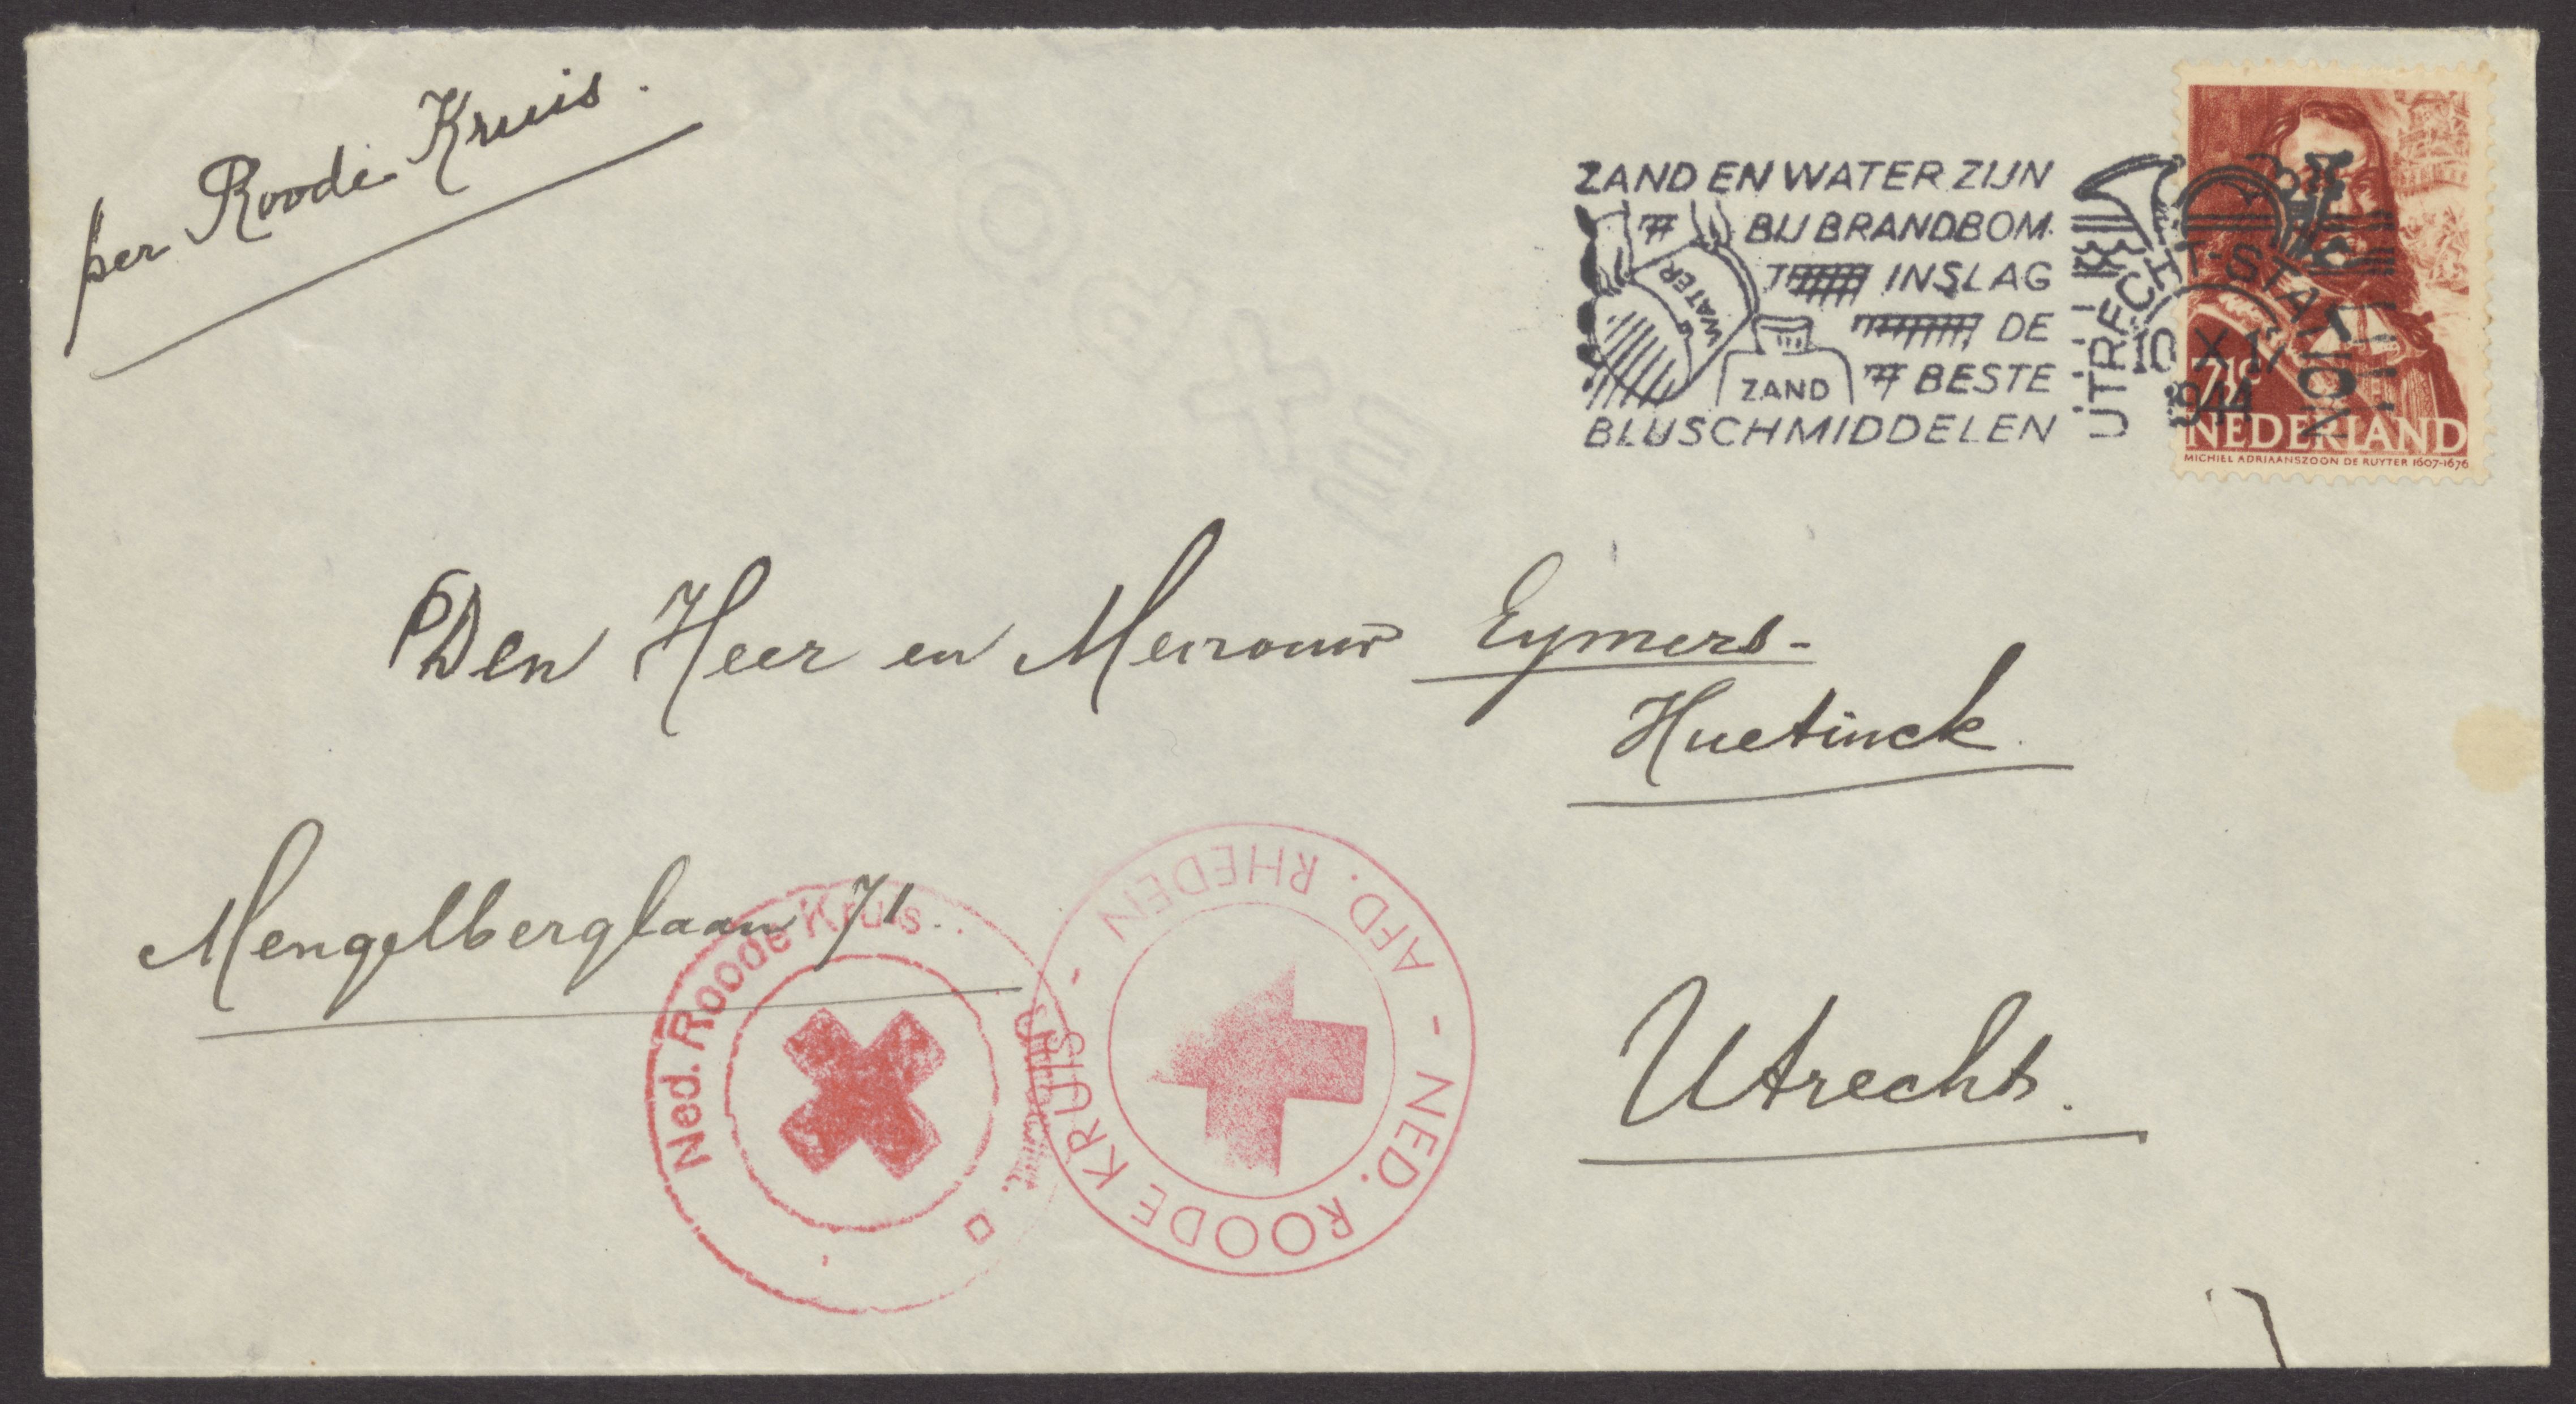 per Roode Kruis.
ZAND EN WATER ZIJN
BIJ BRANDBOM
INSLAG
DE
BESTE
BLUSCHMIDDELEN
WATER
ZAND
UTRECHT-STATION
10 X 17
1944
7½ c
NEDERLAND
MICHIEL ADRIAANSZOON DE RUYTER 1607-1676
Den Heer en Mevrouw Eymers-
Huetinck.
Mengelberglaan 71.
Utrecht.
Ned. Roode Kruis
NED. ROODE KRUIS - AFD. RHEDEN -